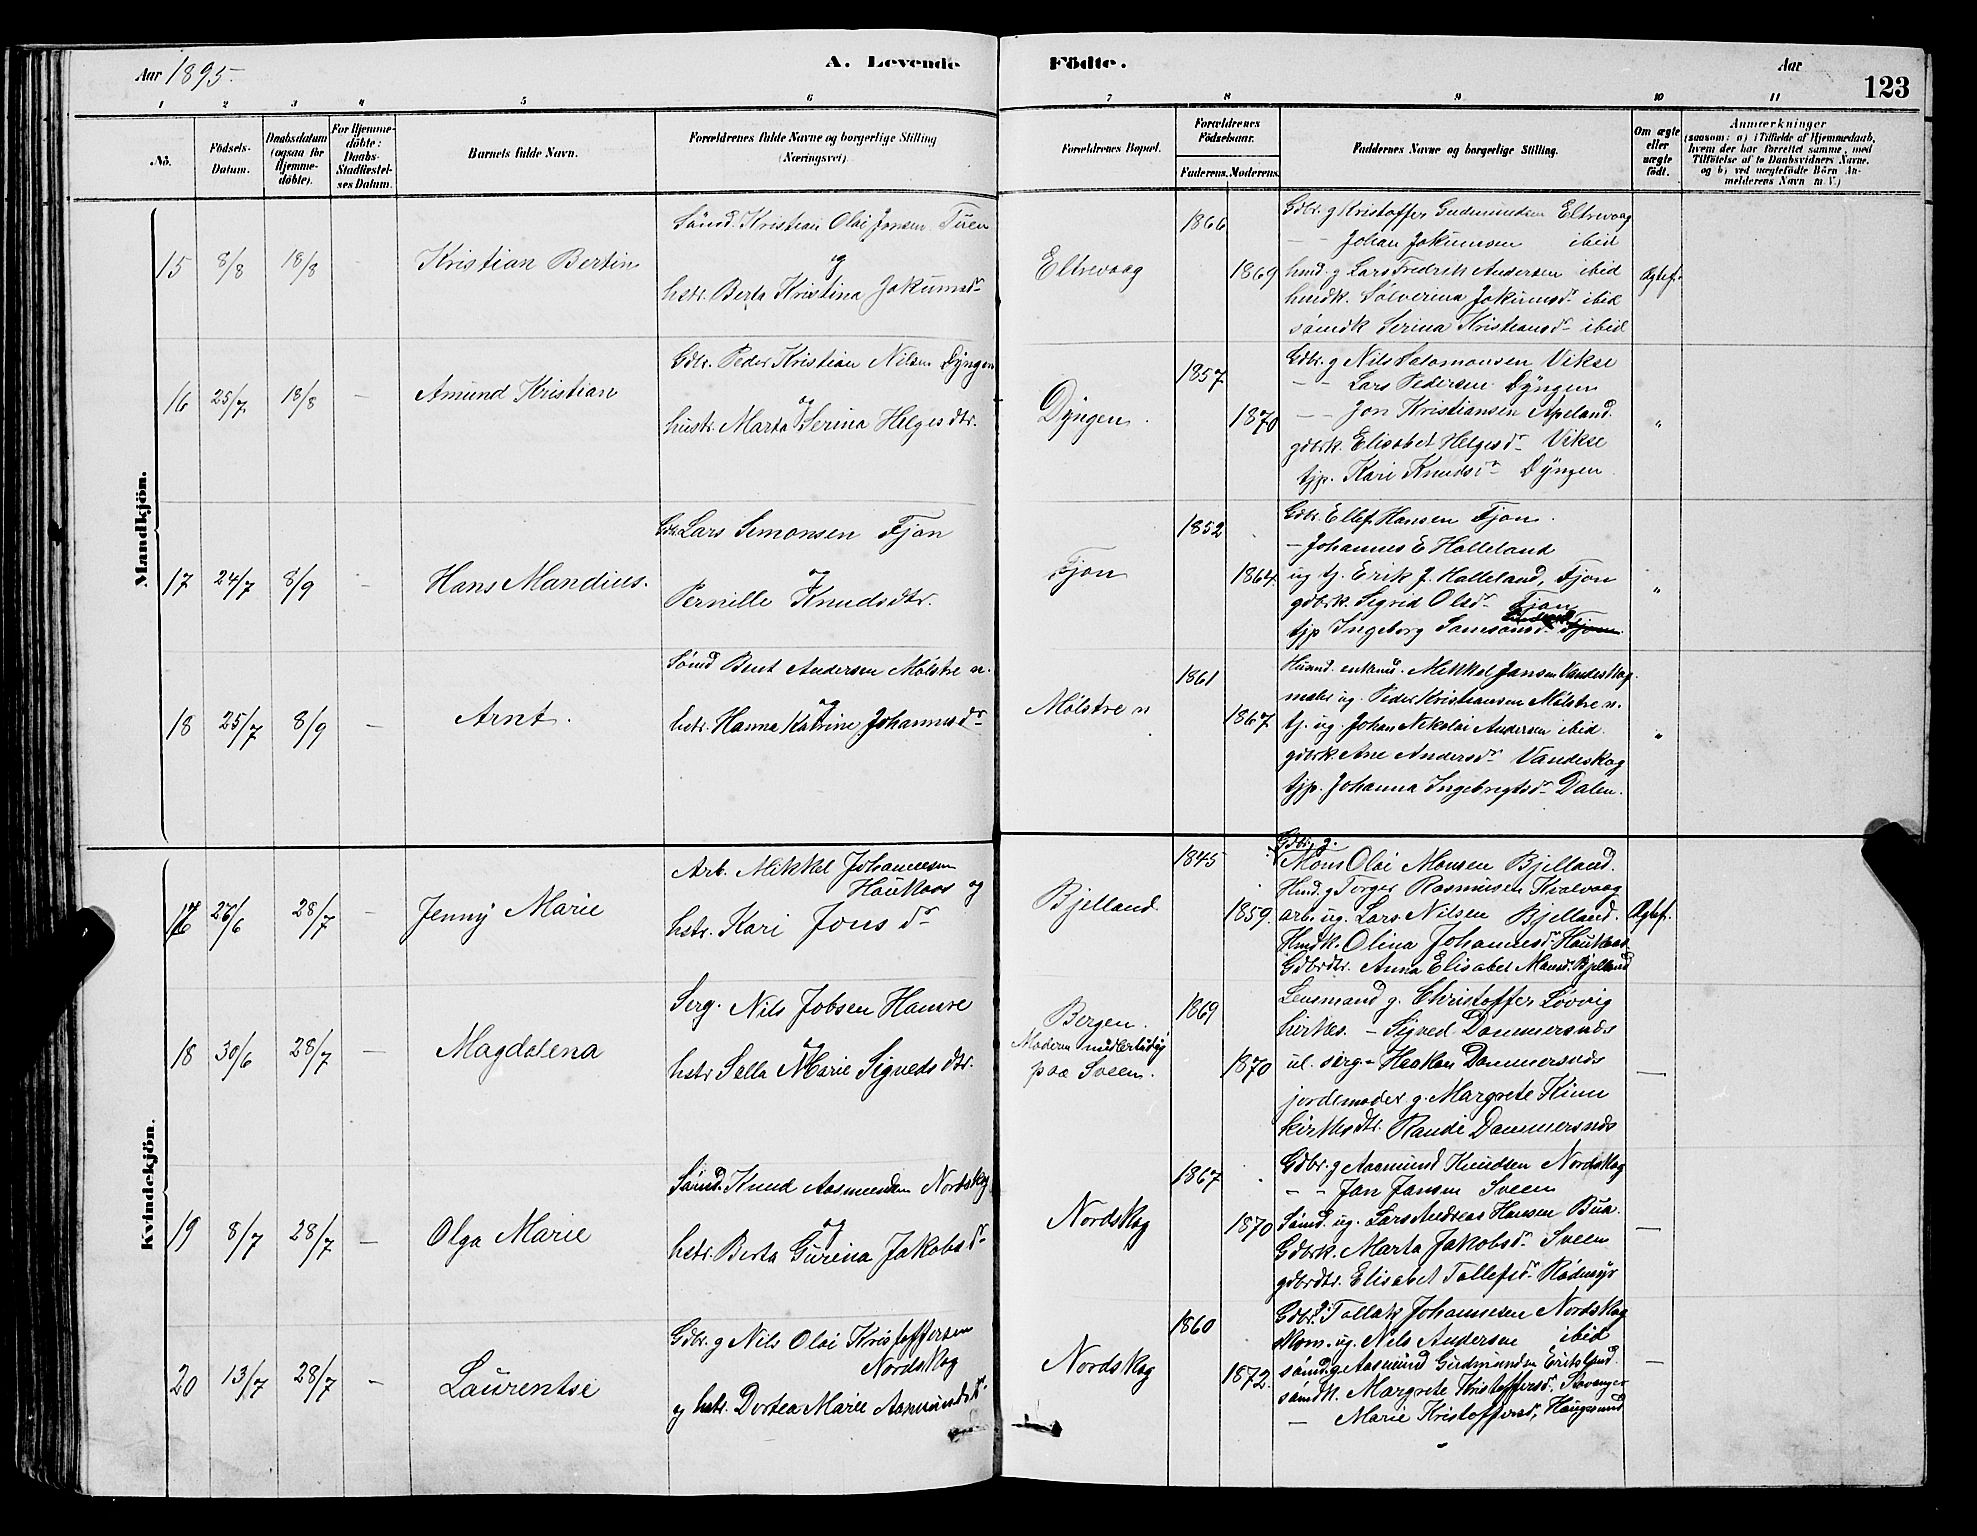 Aar 1895.
A. Levende Födte.
Aar
123
1 2 3 4 5 6 7 8 9 10 11
No.
Födsels-Datum.
Daabsdatum (ogsaa for Hjemme-döbte).
For Hjemme-döbte: Daabs-Stadfæstel-ses Datum.
Barnets fulde Navn.
Forældrenes fulde Navne og borgerlige Stilling (Næringsvei).
Forældrenes Bopæl.
Forældrenes Födselsaar.
Faderens. Moderens.
Faddernes Navne og borgerlige Stilling.
Om ægte eller uægte födt.
Anmærkninger
(saasom: a) i Tilfælde af Hjemmedaab,
hvem der har forrettet samme, med
Tilföielse af to Daabsvidners Navne.
og b) ved uægtefödte Börn An-
melderens Navn m. V.)
Mandkjön.
15 8/8 18/8 – Kristian Bertin
Sömd. Kristian Olai Jonsen Tuen
og
hstr. Berta Kristina Jokumsdr
Eltrevaag
1866
1869
Gdbr. g Kristoffer Gudmundsen Eltrevaag
– – Johan Jokumsen ibid
hmd. g Lars Fredrik Andersen ibid
hmdk. Sølverina Jokumsdr ibid
sömdk Serina Kristiansdr ibid
Ægtef.
16 25/7 18/8 – Amund Kristian
Gdbr. Peder Kristian Nilsen Dyngen
og
hustr. Marta Serina Helgesdtr.
Dyngen.
1857
1870
Gdbr. g Nils Salomonsen Vikse
– – Lars Pedersen Dyngen
– – Jon Kristiansen Apeland.
gdbrk. Elisabet Helgesdr Vikse
tjp. Kari Knudsdr Dyngen.
"
17 24/7 8/9 – Hans Mandius.
Gdbr. Lars Simonsen Fjon
og
Pernille Knudsdtr.
Fjon
1852
1864
Gdbr. Ellef Hansen Fjon.
– Johannes E Halleland
ug tj. Erik J. Halleland, Fjon
gdbrk. Sigrid Olsdr Fjon
tjp Ingeborg Samsonsdr Fjon.
"
18 25/7 8/9 – Arnt.
Sömd Bent Andersen Mölstre n.
og
hstr. Hanna Katrine Johannesdr
Mölstre n
1861
1867
Husmd. enkmd. Mikkel Jansen Vandeskog
maler ug. Peder Kristiansen Mölstre n.
tj. ug. Johan Nikolai Andersen ibid.
gdbrk. Ane Andersdr Vandeskog
tjp. Johanna Ingebregtsdr Dalen.
"
Kvindekjön.
17 26/6 28/7 – Jenny Marie
Arb. Mikkel Johannesen
Haukaas og
hstr. Kari Jonsdr
Bjelland.
1845
1859.
Gdbr. g.
Mons Olai Monsen Bjelland.
Hmd. g Torger Rasmusen Kvalvaag
arb. ug. Lars Nilsen Bjelland.
Hmdk. Olina Johannesdr Haukaas.
Gdbrdtr. Anna Elisabet Monsdr Bjelland
Ægtef.
18 30/6 28/7 – Magdalena
Serg. Nils Jobsen Hamre
og
hstr Sella Marie Sigvedsdtr.
Bergen.
Moderen midlertidig
paa Sveen.
1869
1870
Lensmand g. Christoffer Løvvig
kirkes. – Sigved Dommersnes
ul. serg – Haakon Dommersnes
jordemoder g. Margrete Kinn
kirkesdtr. Randi Dommersnes
—
19 8/7 28/7 – Olga Marie
Sömd. Knud Aasmundsen Nordskog
og
hstr. Berta Gurina Jakobsdr
Nordskog
1867
1870
Gdbr. g Aasmund Knudsen Nordskog
– – Jan Jansen Sveen
Sömd. ug. Lars Andreas Hansen Bua.
Gdbrk. Marta Jakobsdr Sveen
gdbrdtr. Elisabet Tollefsdr Rödmyr
—
20 13/7 28/7 – Laurentse
Gdbr. g Nils Olai Kristoffersen
Nordskog
og hstr. Dortea Marie Aasmundsdtr.
Nordskog
1860
1872.
Gdbr. g Tollak Johannesen Nordskog
skom. ug. Nils Andersen ibid
sömd. g Aasmund Gudmundsen Eriksland.
sömdk. Margrete Kristoffersdr. Stavanger
– Marie Kristoffersdr, Haugesund
—